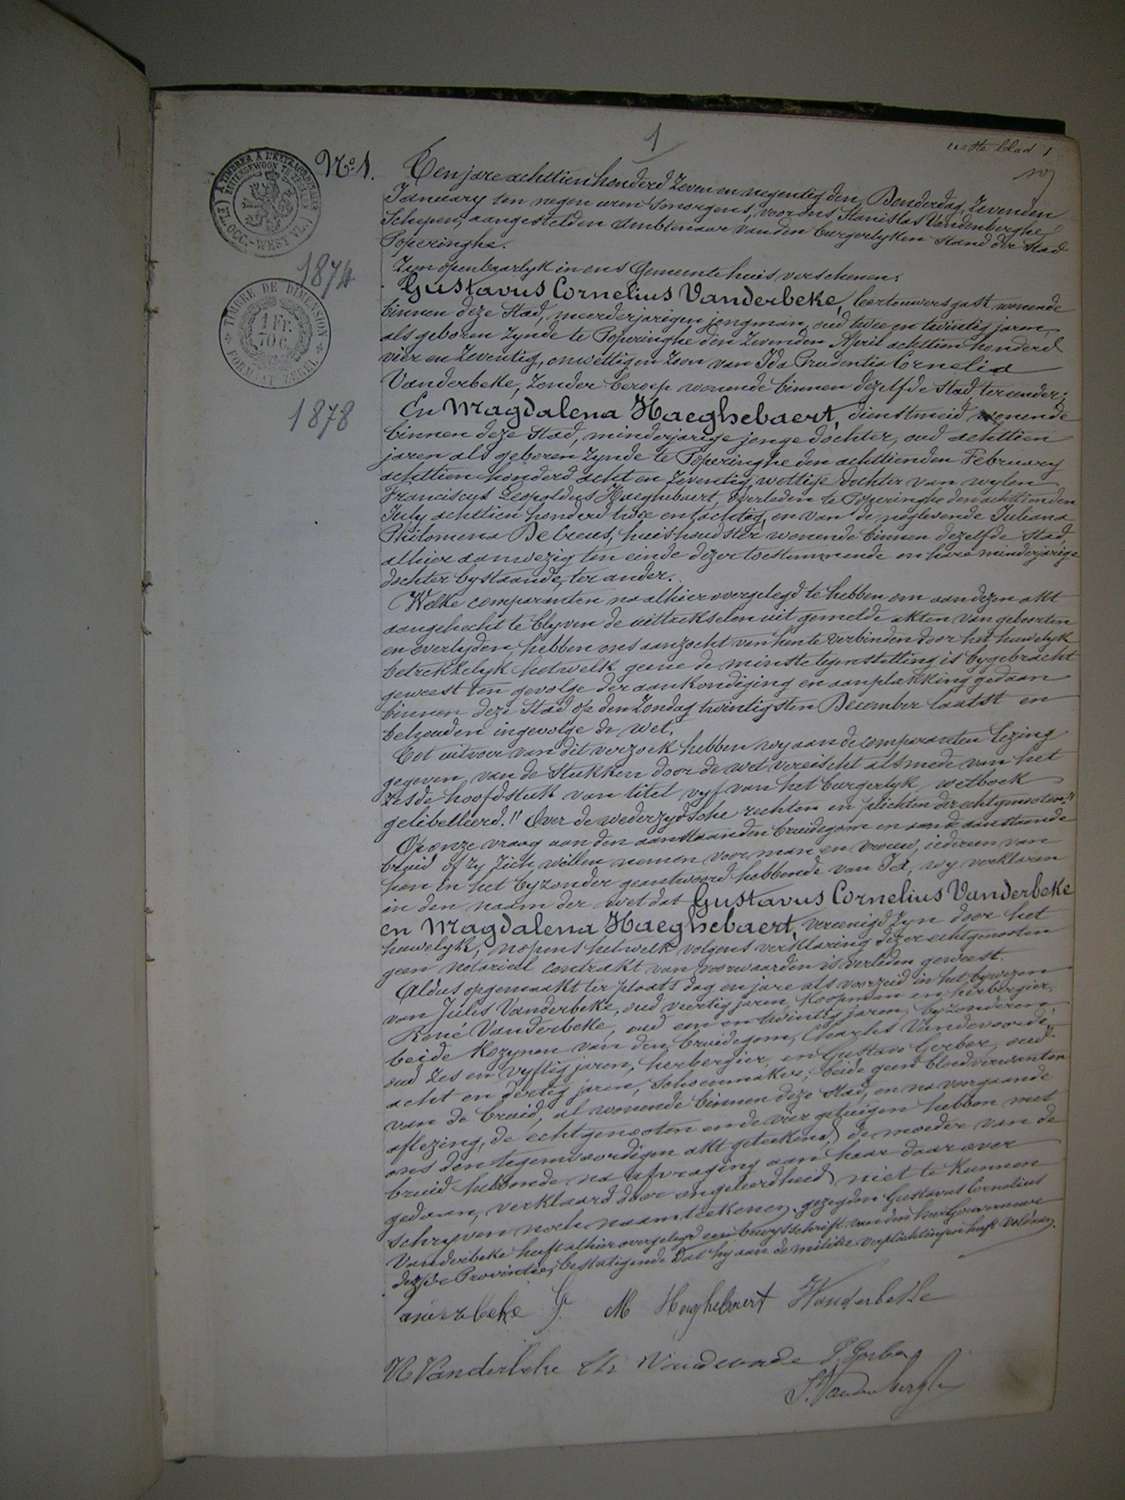 1
1ste blad 1
A TIMBRER A L'EXTRAORDINAIRE
(FL. OCC.-WEST VL.)
1874
TIMBRE DE DIMENSION
1 FR.
70 C.
FORMAAT ZEGEL
1878
N° 1.
Ten jare achttien honderd zeven en negentig den Donderdag, zevensten
January ten negen uren smorgens, voor ons Stanislas Vandenberghe,
Schepen, aangestelden Ambtenaar van den burgerlyken Stand der Stad
Poperinghe.
Zyn openbaarlyk in ons Gemeentehuis verschenen:
Gustavus Cornelius Vanderbeke, wonende
binnen deze Stad, meerderjarigen jongman, oud twee en twintig jaren,
als geboren zynde te Poperinghe den zevenden April achttien honderd
vier en zeventig, onwettigen zoon van Ida Prudentia Cornelia
Vanderbeke, zonder beroep wonende binnen dezelfde Stad, ter eender;
En Magdalena Haeghebaert, dienstmeid wonende
binnen deze Stad, minderjarige jonge dochter, oud achttien
jaren als geboren zynde te Poperinghe den achttienden February
achttien honderd acht en zeventig, wettige dochter van wylen
Franciscus Leopoldus Haeghebaert, overleden te Poperinghe den achttienden
July achttien honderd twee en tachtig, en van de nog levende Juliana
Philomena Decreus, huishoudster wonende binnen dezelfde Stad,
alhier aanwezig ten einde dezer toestemmende en hare minderjarige
dochter bystaande, ter ander.
Welke comparanten na alhier overgelegd te hebben om aan dezen akt
aangehecht te blyven de uittrekselen uit gemelde akten van geboorten
en overlyden, hebben ons aanzocht van hen te verbinden door het huwelyk
betrekkelyk hetwelk geene de minste tegenstelling is bygebracht
geweest ten gevolge der aankondiging en aanplakking gedaan
binnen deze Stad op den Zondag twintigsten December laatst en
behouden ingevolge de wet.
Tot uitvoer van dit verzoek hebben wy aan de comparanten lezing
gegeven, van de Stukken door de wet vereischt alsmede van het
zesde hoofdstuk van titel vyf van het burgerlyk wetboek
gelibelleerd: "Over de wederzydsche rechten en plichten der echtgenooten."
Op onze vraag aan den aanstaanden bruidegom en aan de aanstaande
bruid of zy zich willen nemen voor man en vrouw, iedereen van
hen in het byzonder geantwoord hebbende van Ja, wy verklaren
in den naam der wet dat Gustavus Cornelius Vanderbeke
en Magdalena Haeghebaert, vereenigd zyn door het
huwelyk, nopens hetwelk volgens verklaring dezer echtgenooten
geen notarieel contrakt van voorwaarden is verleden geweest.
Aldus opgemaakt ter plaats dag en jare als voorzeid in het bywezen
van Jules Vanderbeke, oud veertig jaren, koopman en herbergier,
René Vanderbeke, oud een en twintig jaren, byzonderen,
beide kozynen van den bruidegom, Charles Vandevoorde,
oud zes en vyftig jaren, herbergier, en Gustave Gerber, oud
acht en dertig jaren, schoenmaker, beide geen bloedverwanten
van de bruid, al wonende binnen deze Stad, en na voorgaande
aflezing, de echtgenooten en de vier getuigen hebben met
ons den tegenwoordigen akt geteekend, de moeder van de
bruid hebbende na afvraging aan haar daarover
gedaan, verklaard door ongeleerdheid niet te kunnen
schryven noch naamteekenen. gezegden Gustavus Cornelius
Vanderbeke heeft alhier overgelegd een bewysschrift van den heer Gouverneur
dezer Provincie, bestatigende dat hy aan de militie verplichtingen heeft voldaan.
Vanderbeke G. M Haeghebaert Vanderbeke
R Vanderbeke Ch Vandevoorde G. Gerber
S. Vandenberghe